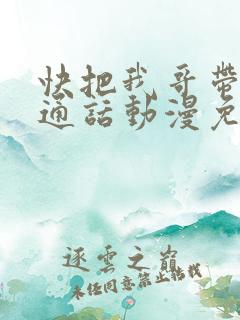 快把我哥帶
通話動漫免
逐雲之巔
未经同意禁止转载